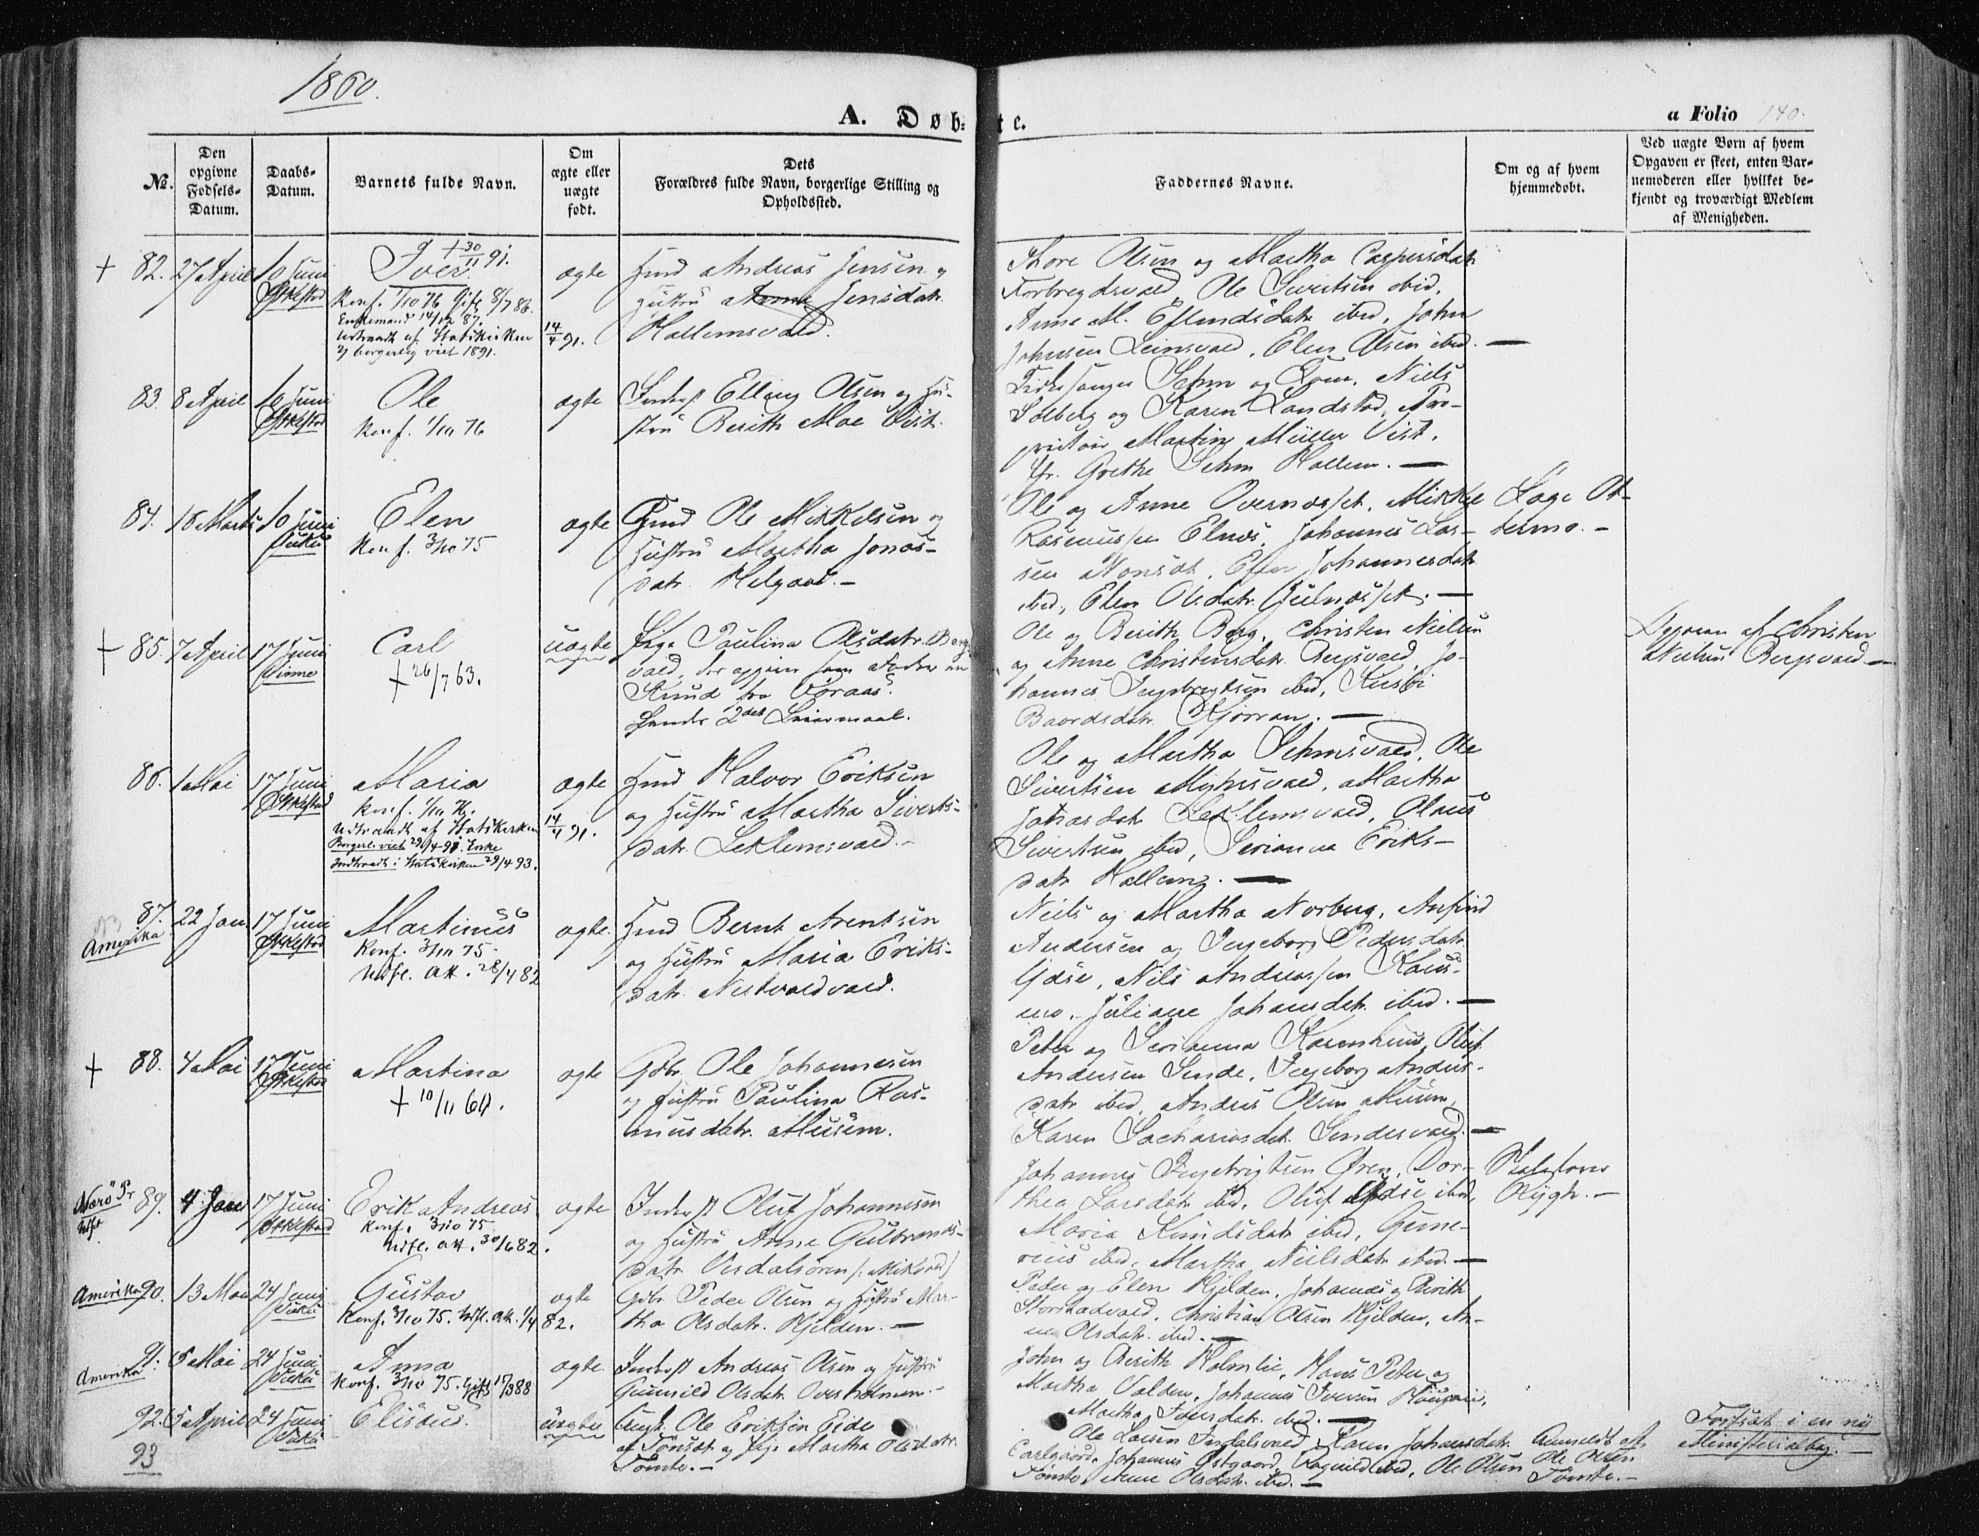 1860.
A. Døbte.
a Folio 140.
No.
Den opgivne Fødsels-Datum.
Daabs-Datum.
Barnets fulde Navn.
Om ægte eller uægte født.
Dets Forældres fulde Navn, borgerlige Stilling og Opholdssted.
Faddernes Navne.
Om og af hvem hjemmedøbt.
Ved uægte Børn af hvem Opgaven er skeet, enten Barnemoderen eller hvilket bekjendt og troværdigt Medlem af Menigheden.
+ 82. 27 April 10 Juni
Iver + 30/11 91.
Konf. 1/10 76 Gift 8/7 86.
Enkemand 14/12 87.
Udtraadt af Statskirken 14/4 91.
borgerlig viet 1891.
ægte
Husmd Andreas Jensen og
Hustru Anna Jensdatr
Hallemsvald.
Thore Olsen og Martha Caspersdatr
Forbregdsvald, Ole Sivertsen ibid,
Anne M. Eflendsdatr ibid, John
Johnsen Leinsvald, Elen Olsen ibid. —
83. 8 April 10 Juni
Ole
Konf. 1/10 76
ægte
Inderst Elling Olsen og Hu-
stru Berith Moe Vist.
Kirkesanger Sehm og Niels
Solberg og Karen Landstad, Pro-
prietair Martin Müller Vist,
Fr. Grethe Sehm Hallem. —
84. 18 Marts 10 Juni
Elen
Konf. 3/10 75
ægte
Husmd Ole Mikkelsen og
Hustru Martha Jonas-
datr. Helgaas. —
Ole og Anne Overnesset, Mikkel
Rasmussen Elnes, Johannes Lar-
sen Nonset, Johannesdatr
ibid, Elen Olsdatr Julnesset. —
+ 85. 7 April 17 Juni
Carl
+ 26/7 63.
uægte
Pige Paulina Olsdatr. Bergs-
vald, der opgiver som Fader en
Knud fra Voraas.
Hendes 2det Leiermaal.
Ole og Berith Berg, Christen Nielsen
og Anne Christensdatr Bergsvald, Jo-
hannes Ingebrigtsen ibid,
Baardsdatr Kjørran. —
af Christen
Nielsen Bergsvald —
86. 1 Mai 17 Juni
Maria
Konf. 1/10 76.
Udtraadt af Statskirken 14/4 91.
Borgerl. viet 29/4 91. Enke
Indtraadt i Statskirken 29/4 93.
ægte
Husmd Halvor Eriksen
og Hustru Martha Siverts-
datr. Leklemsvald. —
Ole og Martha Sehmsvald, Ole
Sivertsen Myhrsvald, Martha
Johasdatr Leklemsvald, Olaus
Sivertsen ibid, Serianna Eriks-
datr Hallem. —
Amerika 87. 22 Jan 17 Juni
Martinus
Konf. 3/10 75
Udfl. Att. 28/4 82
ægte.
Husmd Bernt Arentsen
og Hustru Maria Eriks-
datr. Nestvoldvald.
Niels og Martha Norberg, Anfind
Andersen og Ingeborg Pedersdatr
Ydse, Nils Andreassen Kaus-
mo. Juliane Johansdatr. ibid. —
+ 88. 4 Mai 17 Juni
Martina
+ 10/11 60.
ægte
Gbr. Ole Johannesen
og Hustru Paulina Ras-
musdatr. Musem.
Peter og Serianna Karenhuus, Oluf
Andersen Sende, Ingeborg Anders-
datr ibid, Andreas Olsen Musum,
Karen Sachariasdatr. Sendesvald. —
Nærö Pr 89. 4 Jan 17 Juni
Udfl.
Erik Andreas
Konf. 3/10 75
Udfl. Att. 30/6 82.
ægte
Inderst Oluf Johannesen
og Hustru Anne Gulbrands-
datr Verdalsøren
Johannes Ingebrigtsen Øren, Dor-
thea Larsdatr ibid, Oluf Ydse ibid,
Maria Knudsdatr ibid, Gune-
rius ibid, Martha Nielsdatr ibid. —
Rygh. —
Amerika 90. 13 Mai 24 Juni
Gustav
Konf. 3/10 75. Udfl. Att. 1/4 82.
ægte
Gbr. Peder Olsen og Hustru Mar-
tha Olsdatr. Kjelden. —
Peder og Elen Kjelden, Johannes og Berith
Storstadvald, Christian Olsen Kjelden, An-
ne Olsdatr. ibid. —
Amerika 91. 5 Mai 24 Juni
Anna
Konf. 3/10 75. Gift 17/3 88
ægte
Inderst Andreas Olsen og Hustru
Gunnild Olsdatr Overholmen. —
John og Berith Holmlie, Hans Peter og
Martha Valden, Johannes Iversen
Martha Iversdatr. ibid. —
92. 5 April 24 Juni
Eliseus.
uægte
Ungk. Ole Eriksen Eide
af Tønset og Pige Martha Olsdatr.
Tømte. —
Ole Larsen Indalsvald, Karen Johansdatr
Carlgaard, Johannes Østgaard, Ragnild ibid, Ole Olsen
Tømte, Anne Olsdatr. ibid. —
Anmeldt af
Ole Olsen
Tømte. —
93
Fortsat i en ny
Ministerialbog. —